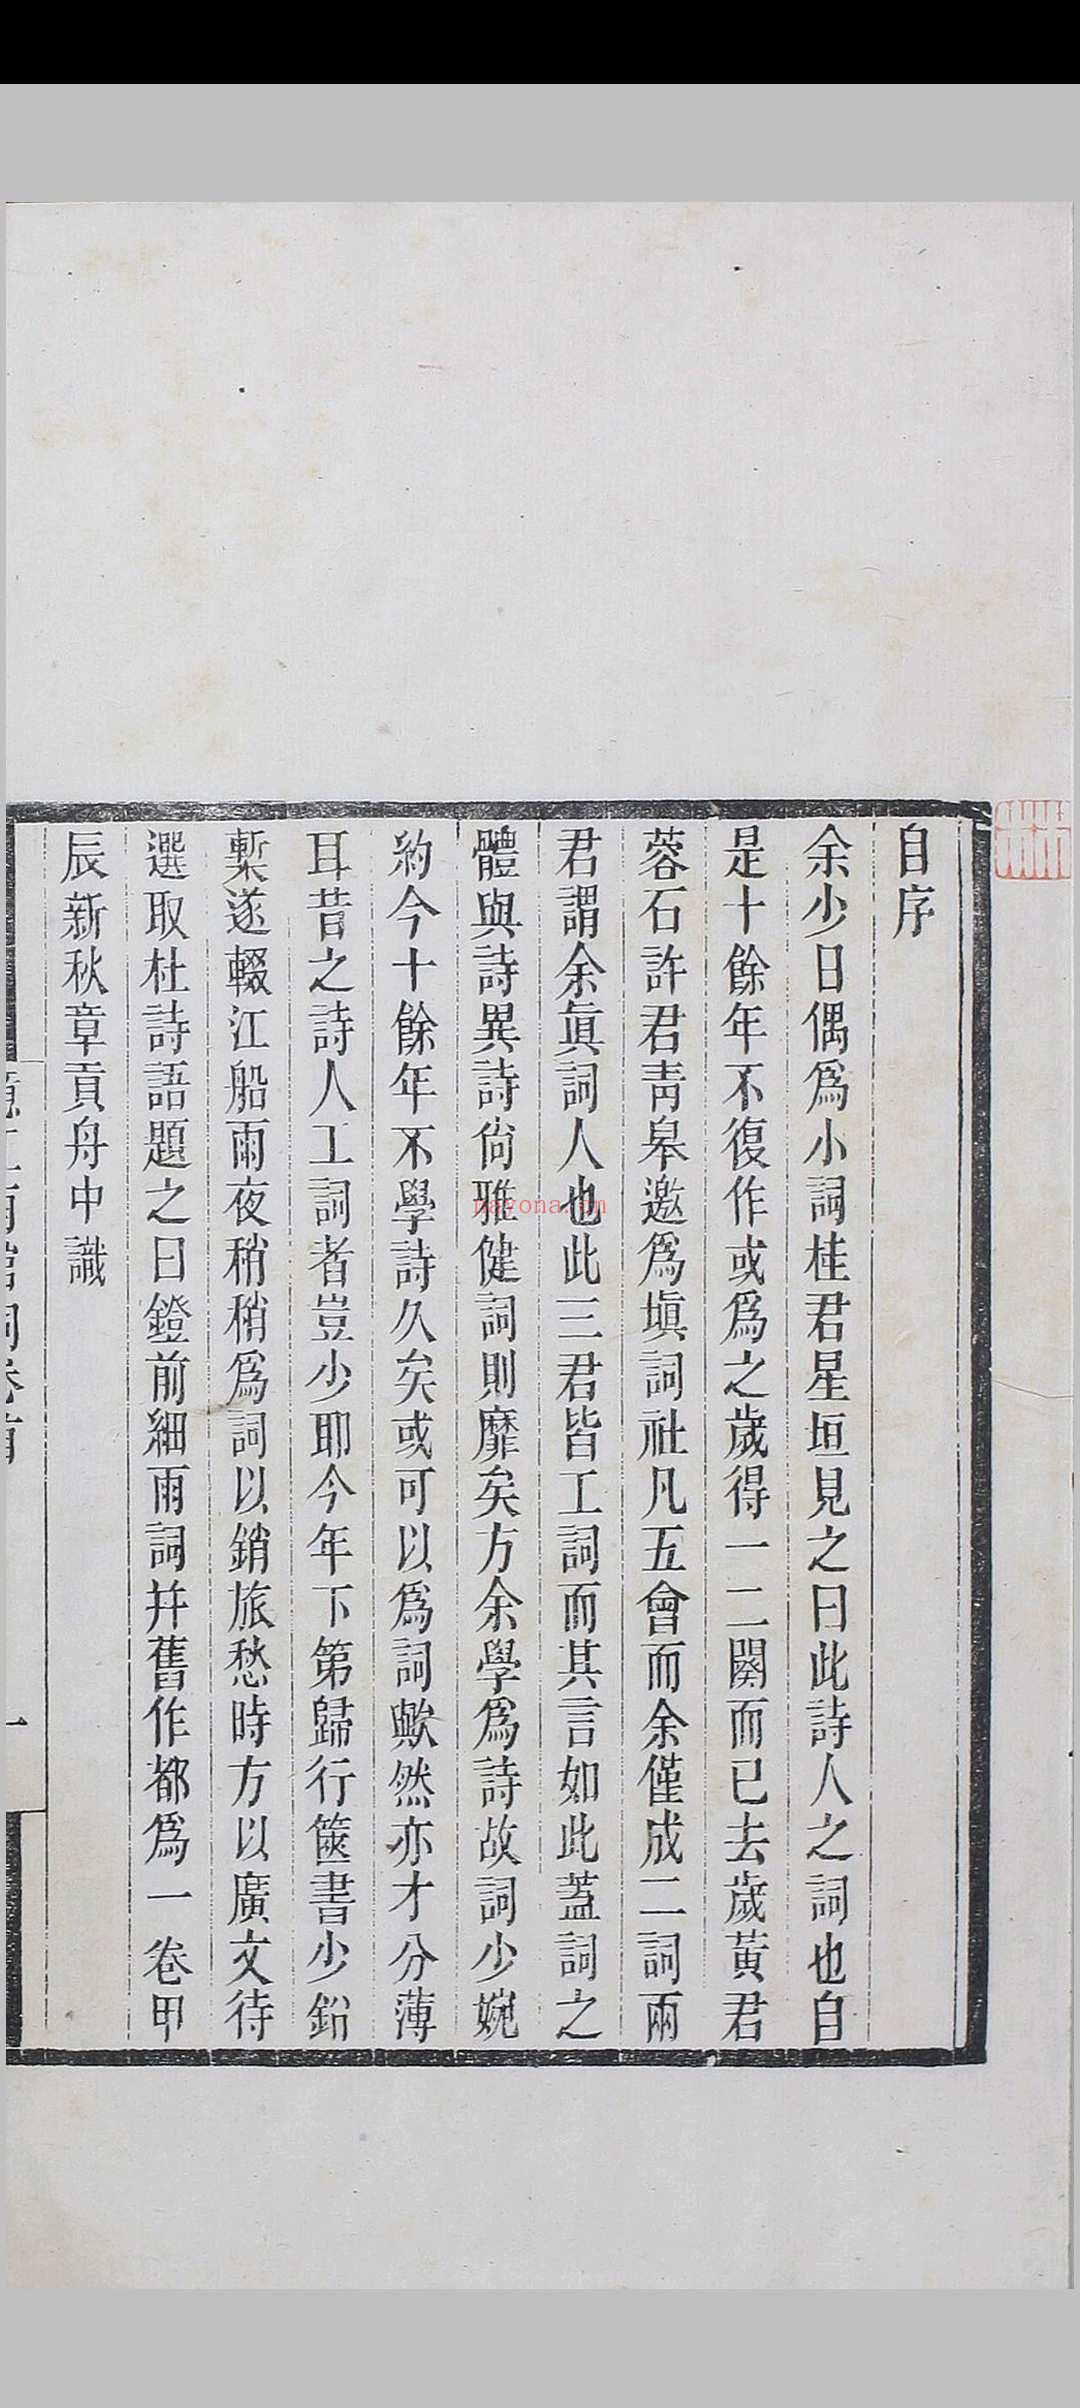 自序
余少日偶爲小詞桂君星垣見之曰此詩人之詞也自
是十餘年不復作或爲之歲得一二闋而已去歲黃君
蓉石許君靑皋邀爲塡詞社凡五會而余僅成二詞兩
君謂余眞詞人也此三君皆工詞而其言如此蓋詞之
體與詩異詩尙雅健詞則靡矣方余學爲詩故詞少婉
約今十餘年不學詩久矣或可以爲詞歟然亦才分薄
耳昔之詩人工詞者豈少耶今年下第歸行篋書少鉛
槧遂輟江船雨夜稍稍爲詞以銷旅愁時方以廣文待
選取杜詩語題之曰鐙前細雨詞幷舊作都爲一卷甲
辰新秋章貢舟中識
一
nayona.cn